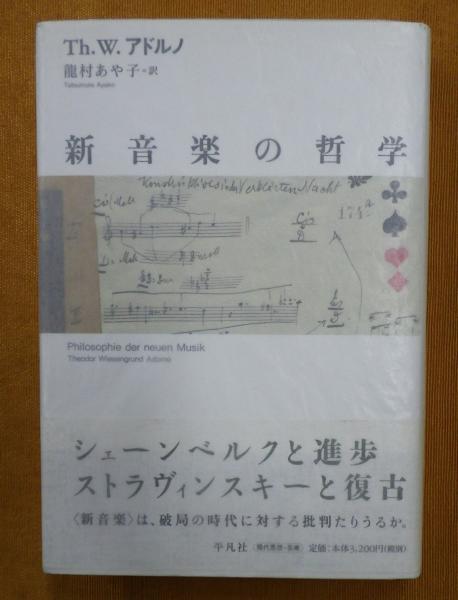 Th.W. アドルノ
龍村あや子・訳
Tatsumura Ayako
新音楽の哲学
Philosophie der neuen Musik
Theodor Wiesengrund Adorno
シェーンベルクと進歩
ストラヴィンスキーと復古
〈新音楽〉は、破局の時代に対する批判たりうるか。
平凡社 定価:本体3,200円(税別)